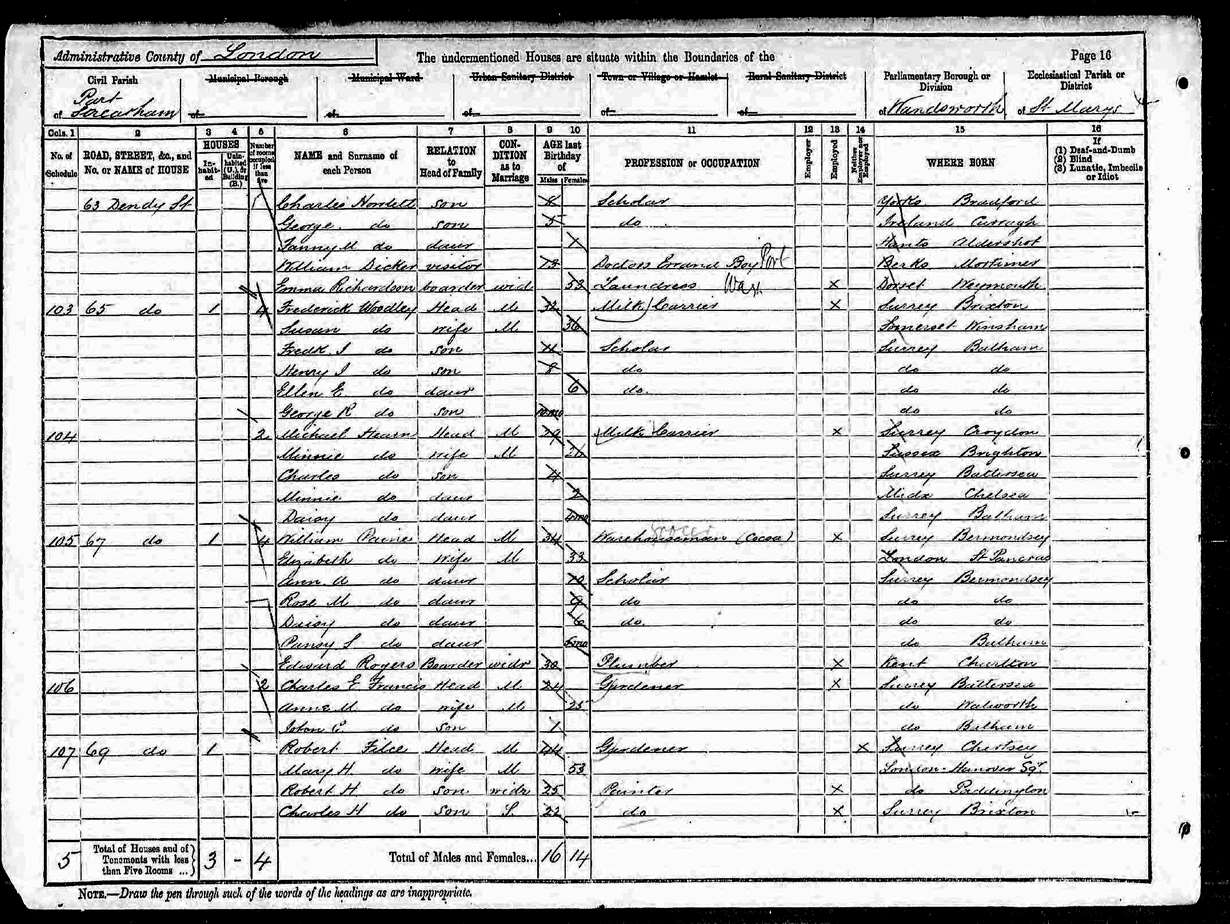 Administrative County of London The undermentioned Houses are situate within the Boundaries of the Page 16
Civil Parish Municipal Borough Municipal Ward Urban Sanitary District Town or Village or Hamlet Rural Sanitary District Parliamentary Borough or Division Ecclesiastical Parish or District
Part
of Streatham of of of of of of Wandsworth of St. Marys
Cols. 1 2 3 4 5 6 7 8 9 10 11 12 13 14 15 16
No. of Schedule ROAD, STREET, &c., and No. or NAME of HOUSE HOUSES Inhabited Uninhabited (U.), or Building (B.) Number of rooms occupied if less than five NAME and Surname of each Person RELATION to Head of Family CONDITION as to Marriage AGE last Birthday of Males Females PROFESSION or OCCUPATION Employer Employed Neither Employer nor Employed WHERE BORN If (1) Deaf-and-Dumb (2) Blind (3) Lunatic, Imbecile or Idiot
63 Dendy St Charles Howlett son 8 Scholar Yorks Bradford
George do son 5 do Ireland Curragh
Fanny M do daur 1 Hants Aldershot
William Dicker visitor 13 Doctors Errand Boy Port Berks Mortimer
Emma Richardson boarder wid 53 Laundress Wax x Dorset Weymouth
103 65 do 1 4 Frederick Woodley Head M 32 Milk Carrier x Surrey Brixton
Susan do wife M 36 Somerset Winsham
Fredk J do son 11 Scholar Surrey Balham
Henry J do son 8 do do do
Ellen E do daur 6 do do do
George R do son 10mo do do
104 2 Michael Hearn Head M 29 Milk Carrier x Surrey Croydon
Minnie do wife M 26 Sussex Brighton
Charles do son 4 Surrey Battersea
Minnie do daur 2 Midx Chelsea
Daisy do daur Surrey Balham
105 67 do 1 4 William Paine Head M 34 Warehouseman (Cocoa) Grocer x Surrey Bermondsey
Elizabeth do Wife M 33 London St Pancras
Ann A do daur 10 Scholar Surrey Bermondsey
Rose M do daur 9 do do do
Daisy do daur 6 do do do
Pansy S do daur 6mo do Balham
Edward Rogers Boarder widr 30 Plumber x Kent Charlton
106 2 Charles E Francis Head M 24 Gardener x Surrey Battersea
Anne M do wife M 25 do Walworth
John E do son 1 do Balham
107 69 do 1 Robert Filce Head M 44 Gardener x Surrey Chertsey
Mary H do wife M 53 London Hanover Sqr
Robert H do son widr 25 Painter x do Paddington
Charles H do son S. 22 do x Surrey Brixton
5 Total of Houses and of Tenements with less than Five Rooms ... 3 - 4 Total of Males and Females... 16 14
NOTE.—Draw the pen through such of the words of the headings as are inappropriate.